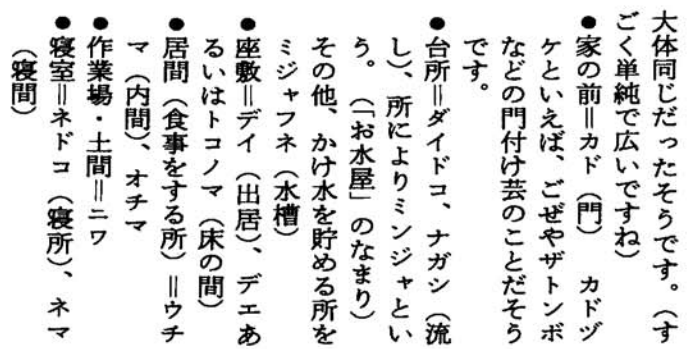 大体同じだったそうです。（す
ごく単純で広いですね）
●家の前＝カド（門）　カドヅ
ケといえば、ごぜやザトンボ
などの門付け芸のことだそう
です。
●台所＝ダイドコ、ナガシ（流
し）、所によりミンジャとい
う。（「お水屋」のなまり）
その他、かけ水を貯める所を
ミジャフネ（水槽）
●座敷＝デイ（出居）、デエあ
るいはトコノマ（床の間）
●居間（食事をする所）＝ウチ
マ（内間）、オチマ
●作業場・土間＝ニワ
●寝室＝ネドコ（寝所）、ネマ
（寝間）